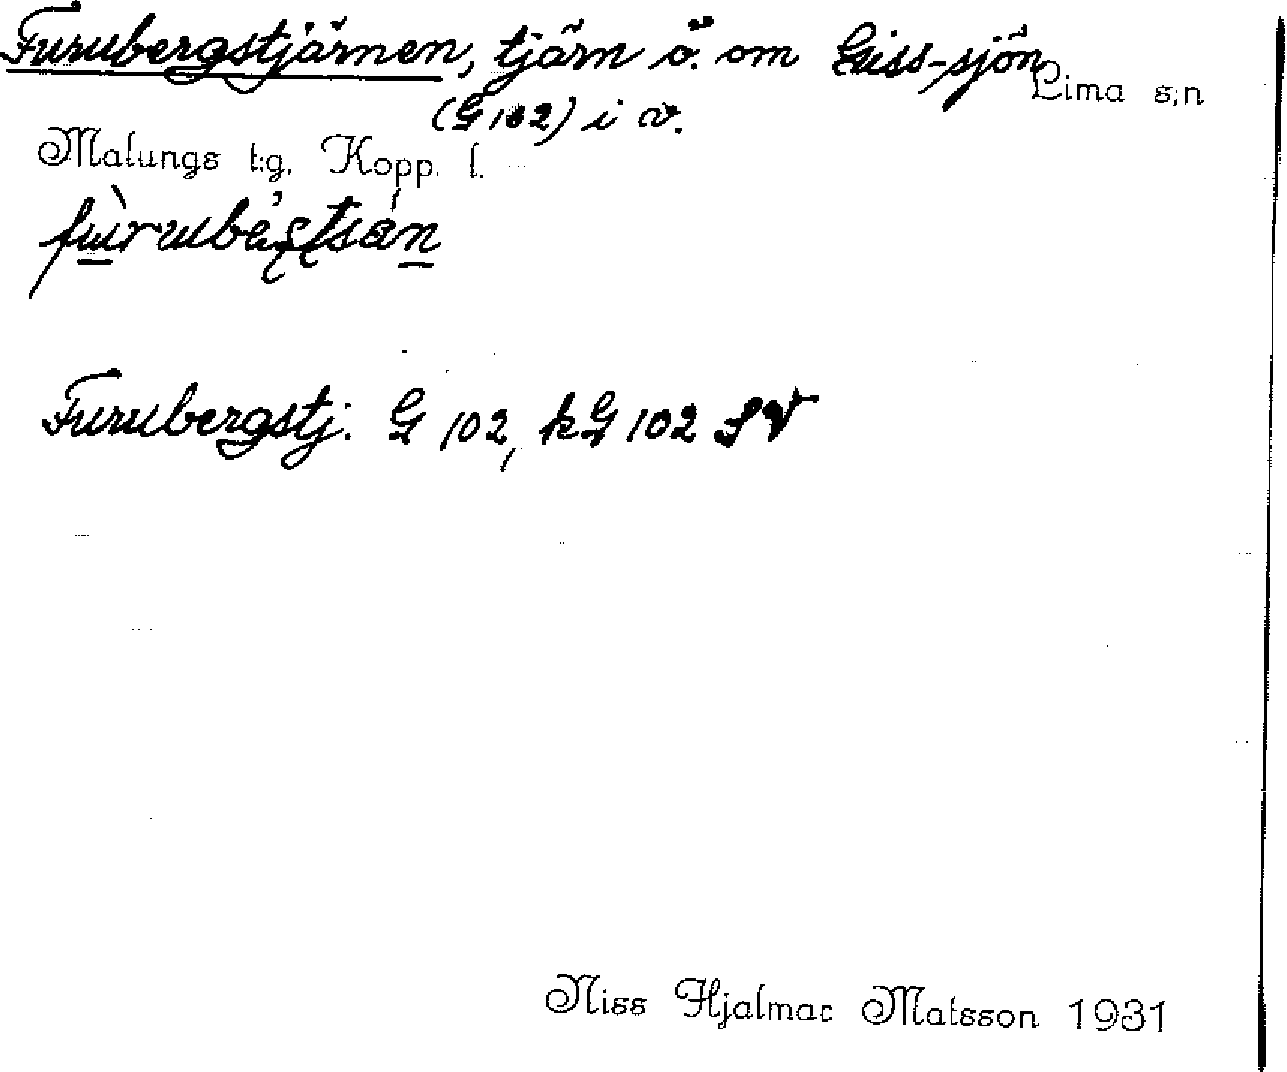 Furubergstjärnen, tjärn ö. om Giss-sjön
Lima s:n
(G 102) i v.
Malungs t:g. Kopp. l.
Furubergstj. G 102, kG 102 SV
Niss Hjalmar Matsson 1931